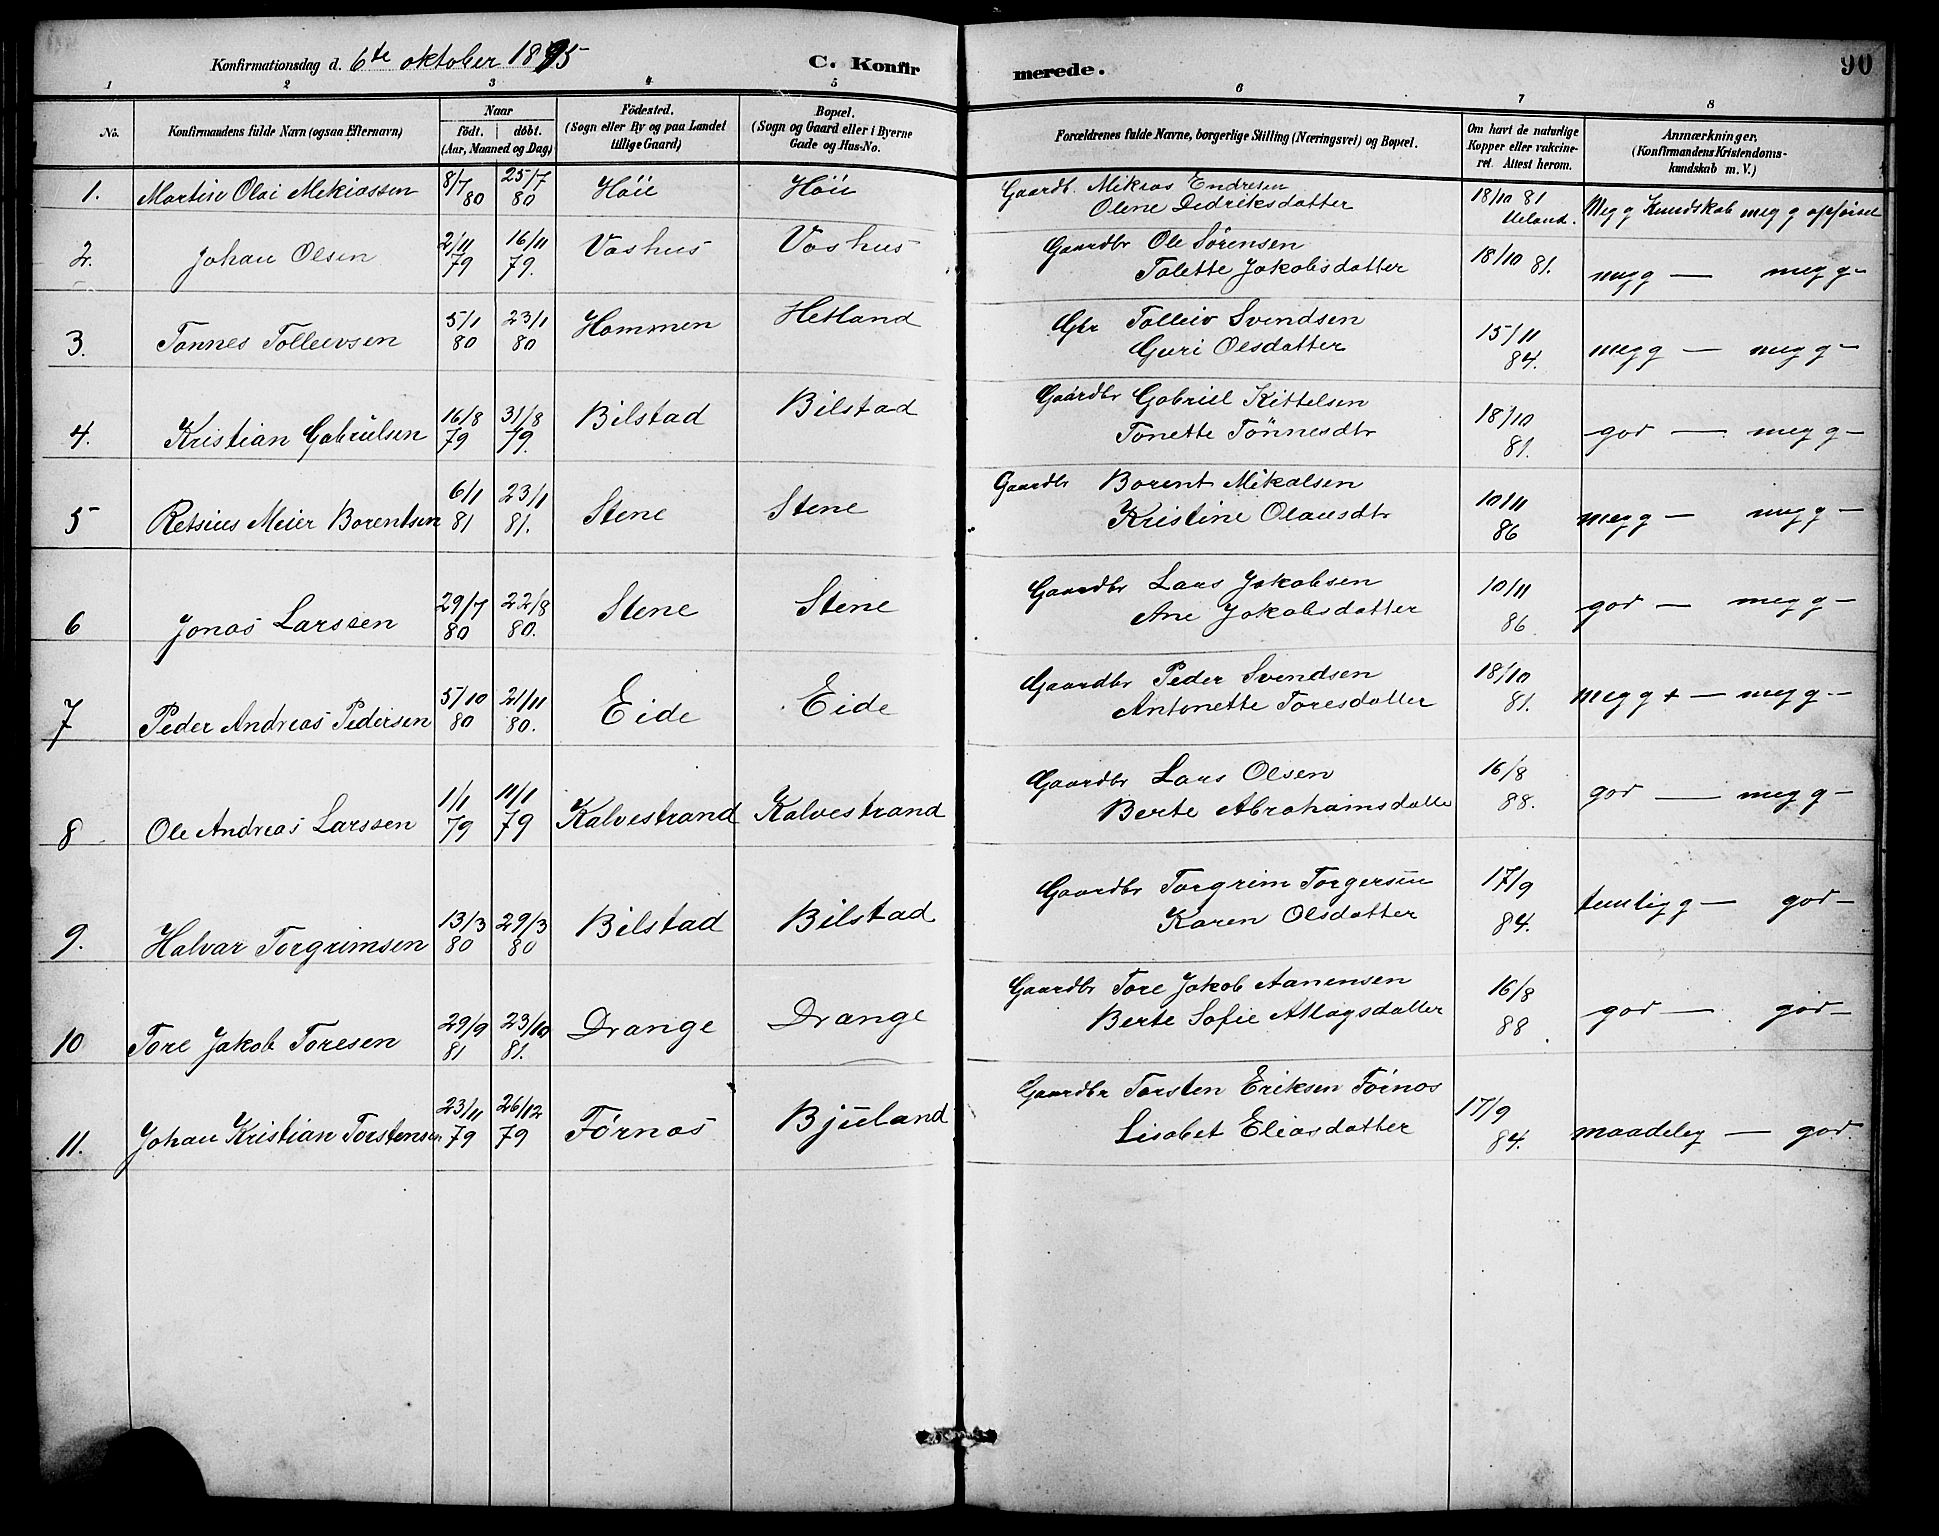 Konfirmationsdag d. 6te oktober 1895 C. Konfirmerede. 90
1 2 3 4 5 6 7 8
No. Konfirmandens fulde Navn (ogsaa Efternavn) Naar födt. döbt. (Aar, Maaned og Dag) Födested. (Sogn eller By og paa Landet tillige Gaard) Bopæl. (Sogn og Gaard eller i Byerne Gade og Hus-No. Forældrenes fulde Navne, borgerlige Stilling (Næringsvei) og Bopæl. Om havt de naturlige Kopper eller vakcineret. Attest herom. Anmærkninger, (Konfirmandens Kristendomskundskab m. V.)
1. Martin Olai Mekiassen 8/7 80 25/7 80 Höie Höie Gaardb. Mikias Endresen
Olene Didriksdatter 18/10 81 Ueland. Meg g Kundskab meg g opførsel
2. Johan Olsen 2/11 79 16/11 79. Voshus Voshus Gaardbr Ole Sörensen
Tolette Jakobsdatter 18/10 81. meg g — meg g —
3. Tönnes Tolleivsen 5/1 80 23/1 80 Hommen Hetland Gbr Tolleiv Svendsen
Guri Olsdatter 15/11 84. meg g — meg g —
4. Kristian Gabrielsen 16/8 79 31/8 79. Bilstad Bilstad Gaardbr Gabriel Kittelsen
Tonette Tönnesdtr 18/10 81. god — meg g —
5 Retsius Meier Borentsen 6/1 81 23/1 81. Stene Stene Gaardbr Borent Mikalsen
Kristine Olausdtr 10/11 86 meg g — meg g —
6 Jonas Larssen 29/7 80 22/8 80. Stene Stene Gaardbr Lars Jakobsen
Ane Jakobsdatter 10/11 86 god — meg g —
7 Peder Andreas Pedersen 5/10 80 21/11 80. Eide Eide Gaardbr Peder Svendsen
Antonette Toresdatter 18/10 81. meg g + — meg g —
8 Ole Andreas Larssen 1/1 79 11/1 79 Kalvestrand Kalvestrand Gaardbr Lars Olsen
Berte Abrahamsdatte 16/8 88. god — meg g —
9. Halvar Torgrimsen 13/3 80 29/3 80 Bilstad Bilstad Gaardbr Torgrim Torgersen
Karen Olsdatter 17/9 84. temlig g — god —
10 Tore Jakob Toresen 29/9 81 23/10 81. Drange Drange Gaardbr Tore Jakob Aanensen
Berte Sofie Atlagsdatter 16/8 88 god — god —
11. Johan Kristian Torstensen 23/11 79 26/12 79 Förnos Bjuland Gaardbr Torsten Eriksen Förnos
Lisabet Eliasdatter 17/9 84. maadelig — god.